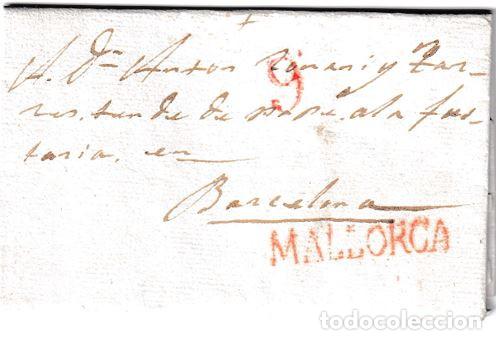 +
A Dn Anton Romani y Tar-
res. tende de papé. a la fus-
taria. en
Barcelona
9
MALLORCA
todocoleccion